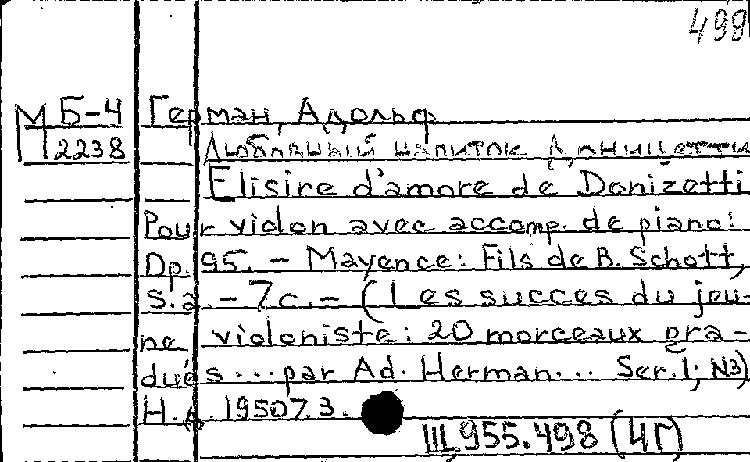 499
М Б-4 Герман, Адольф
2238 Любовный напиток Доницетти
Elisire d'amore de Donizetti
Pour violon avec accomp. de piano:
Op. 95. - Mayence: Fils de B. Schott,
s.a. - 7c. - (Les succes du jeu-
ne violoniste: 20 morceaux gra-
dués ... par Ad. Herman ... Ser. 1; N3)
Н.д. 19507.3.
Ш 955.498 (4Г)